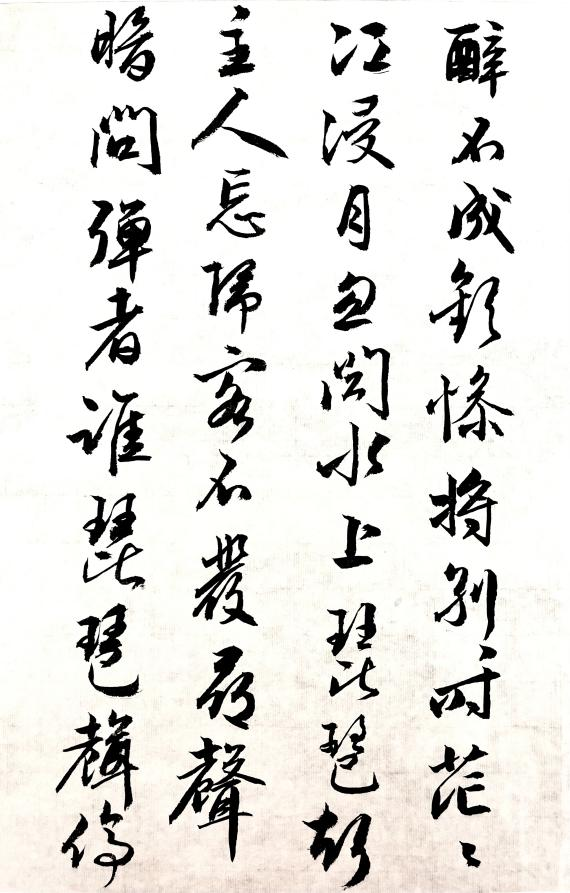 醉不成歡慘將別〻時茫〻
江浸月忽聞水上琵琶聲
主人忘歸客不發尋聲
暗問彈者誰琵琶聲停